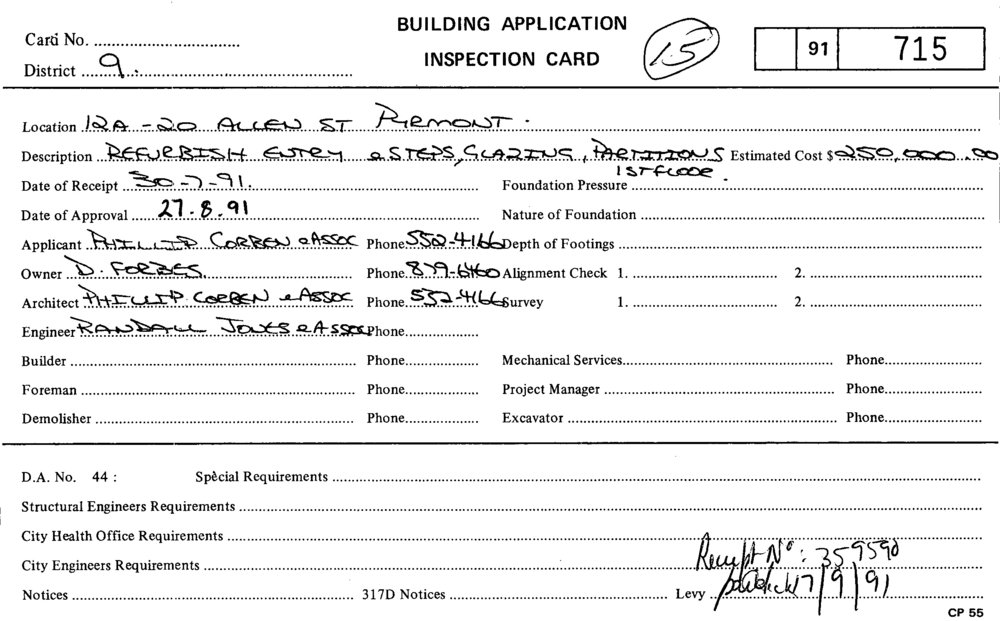 BUILDING APPLICATION
Card No.
INSPECTION CARD
15
91 715
District 9.
Location 12A - 20 ALLEN ST PYRMONT.
Description REFURBISH ENTRY & STEPS, GLAZING, PARTITIONS Estimated Cost $ 250,000.00
1ST FLOOR.
Date of Receipt 30-7-91. Foundation Pressure
Date of Approval 27.8.91 Nature of Foundation
Applicant PHILLIP CORBEN & ASSOC Phone 552-4166 Depth of Footings
Owner D. FORBES. Phone 879-6460 Alignment Check 1. 2.
Architect PHILLIP CORBEN & ASSOC Phone 552-4166 Survey 1. 2.
Engineer RANDALL JONES & ASSOC Phone
Builder Phone Mechanical Services Phone
Foreman Phone Project Manager Phone
Demolisher Phone Excavator Phone
D.A. No. 44 : Special Requirements
Structural Engineers Requirements
City Health Office Requirements
City Engineers Requirements Receipt No: 359590
Notices 317D Notices Levy 17/9/91
CP 55